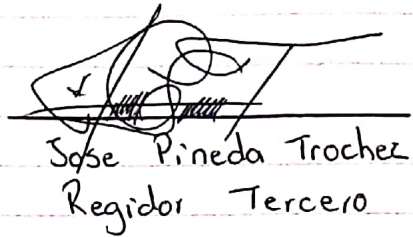 Jose Pineda Trochez
Regidor Tercero